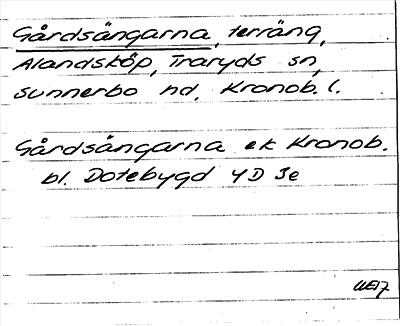 Gårdsängarna, terräng,
Ålandsköp, Traryds sn,
Sunnerbo hd, Kronob. l.
Gårdsängarna ek Kronob.
bl. Dotebygd 4D 3e